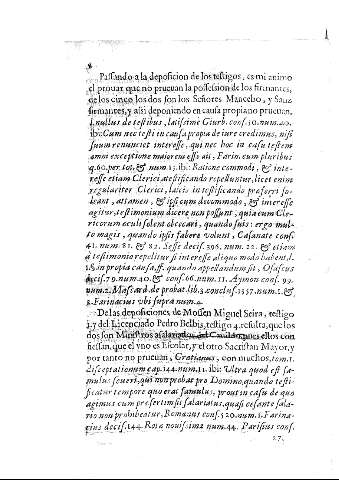 8
Passando a la deposicion de los testigos, es mi animo
el prouar que no prueuan la possession de los firmantes,
de los cinco los dos son los Señores Mancebo, y Sanz
firmantes, y assi deponiendo en causa propiano prueuan,
l.nullus de testibus, latissime Giurb. cons.50.num.20.
ibi: Cum nec testi in causa propia de iure credimus, nisi
suum renunciet interesse, qui nec hoc in casu testem
omni exceptione maiorem esse ait, Farin. cum pluribus
q.60. per tot. & num. 13. ibi: Ratione commodi, & inte-
resse etiam Clerici à testificando repelluntur, licet enim
regulariter Clerici, laicis in testificando præferri so-
leant, attamen, & ipsi cum de commodo, & interesse
agitur, testimonium dicere non possunt, quia cum Cle-
ricorum oculi soleat obcecari, quando suis: ergo mul-
to magis, quando ipsis fabore volunt, Casanate cons.
41. num. 81. & 82. Sesse decis. 396. num. 22. & etiam
à testimonio repelitur si interesse aliquo modo habent, l.
1. §. in propia causa, ff. quando appellandum sit, Osascus
decis. 79. num. 20. & cons. 66. num. 11. Aymon cons. 99.
num. 2. Mascard. de probat. lib. 3. conclus. 1357. num. 2. &
3. Farinacius vbi supra num. 4.
De las deposiciones de Mossen Miguel Seira, testigo
3. y del Licenciado Pedro Belbis, testigo 4. resulta, que los
dos son Ministros asalariados del Cauildo, que ellos con
fiessan, que el vno es Escolar, y el otro Sacristan Mayor, y
por tanto no prueuan, Gratianus, con muchos, tom. 1.
disceptationum cap. 144. num. 11. ibi: Vltra quod est fa-
mulus seueri, qui non probat pro Domino, quando testi-
ficatur tempore quo erat famulus, prout in casu de quo
agimus cum præsertim sit salariatus, quasi cesante sala-
rio non prohibeatur, Romanus cons. 520. num. 1. Farina-
cius decis. 144. Rota nouissima num. 44. Parisius cons.
27.